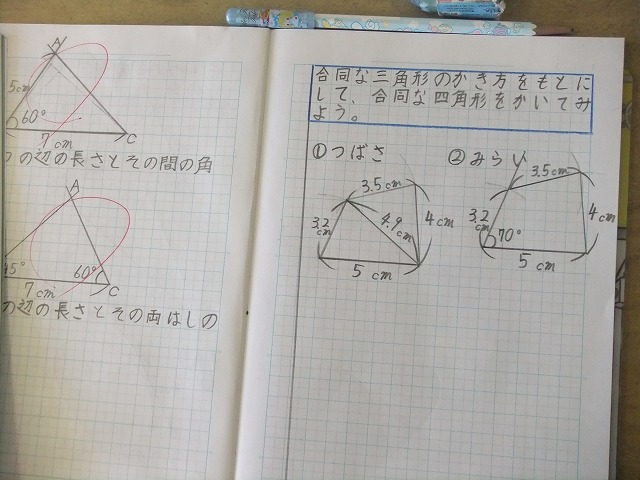 A
5cm
60°
7cm
C
の辺の長さとその間の角
A
45°
60°
7cm
C
の辺の長さとその両はしの
合同な三角形のかき方をもとに
して、合同な四角形をかいてみ
よう。
①つばさ
3.5cm
3.2cm
4.9cm
4cm
5cm
②みらい
3.5cm
3.2cm
70°
4cm
5cm